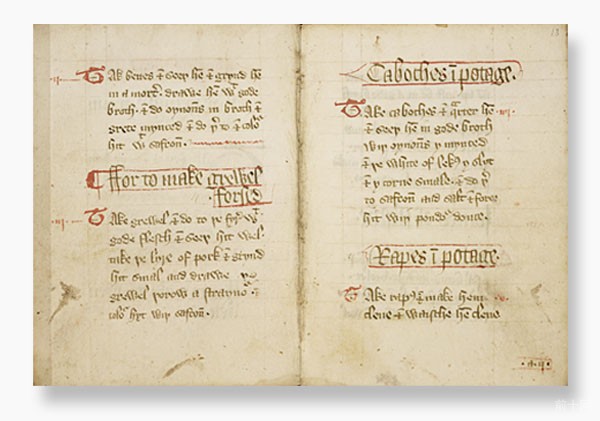 Tak benes & seeþ he & grynd he
in a morter. drawe he w gode
broth. & do oynons in broth &
grete mynced & do þ to & colo
hit w safron.
ffor to make grewel
forsed
Take grewel & do to þe fyr w
gode flesch & seeþ hit wel.
take þe lyre of pork & grynd
hit smal and drawe þe
grewel þorow a straynor &
colo hyt wiþ safron.
Caboches ī potage.
Take caboches & qrter he
& seeþ he in gode broth
wiþ oynons y mynced
& þe white of lekȝ y slyt
& y corue smale. & do þ
to safron and salt & force
hit wiþ poudr douce.
Rapes ī potage.
Take rapȝ & make hem
clene & waische he clene